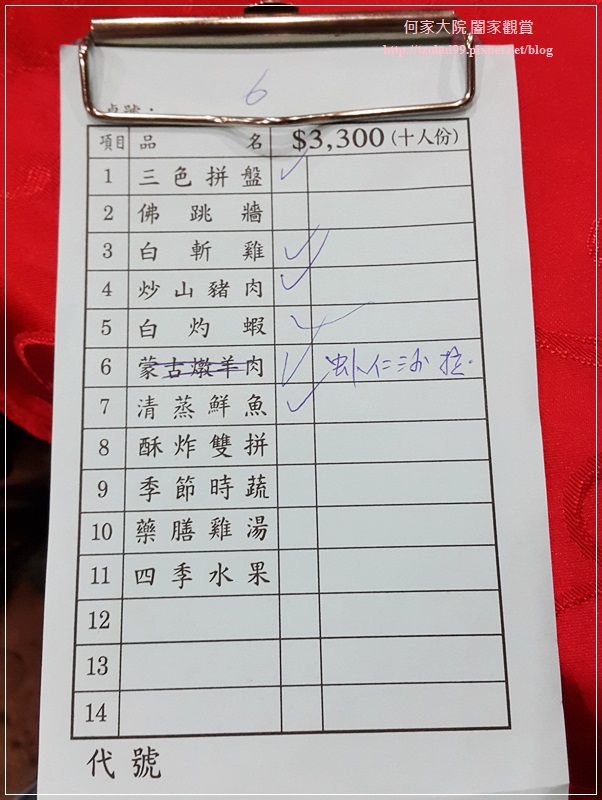 何家大院 闔家觀賞
桌號：
6
項目 品名 $3,300 (十人份)
1 三色拼盤 ✓
2 佛跳牆
3 白斬雞 ✓
4 炒山豬肉 ✓
5 白灼蝦 ✓
6 蒙古燉羊肉 ✓ 虾仁沙拉.
7 清蒸鮮魚 ✓
8 酥炸雙拼
9 季節時蔬
10 藥膳雞湯
11 四季水果
12
13
14
代號